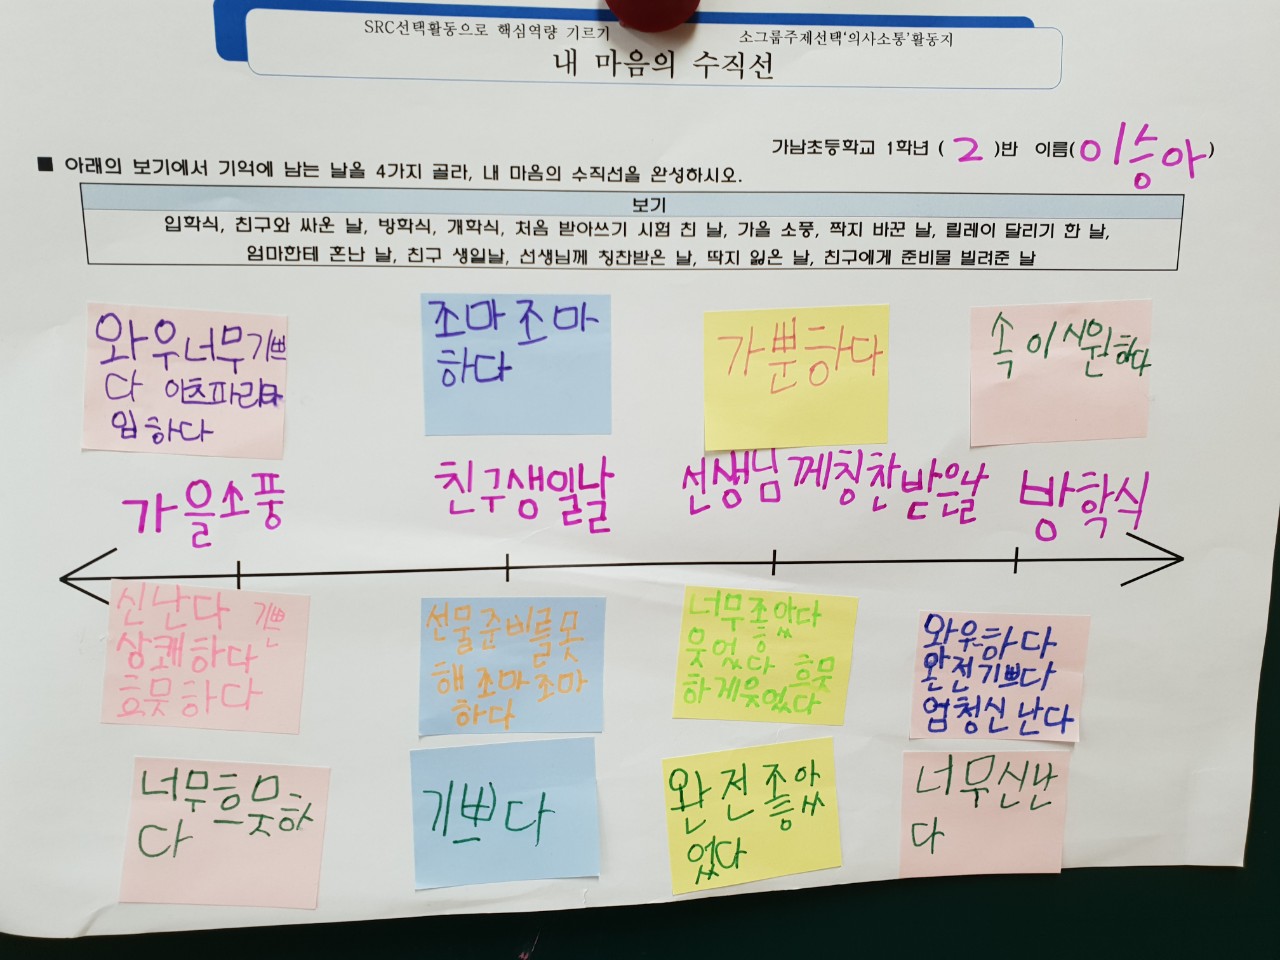 SRC선택활동으로 핵심역량 기르기 소그룹주제선택'의사소통'활동지
내 마음의 수직선
가남초등학교 1학년 ( 2 )반 이름(이승아)
■ 아래의 보기에서 기억에 남는 날을 4가지 골라, 내 마음의 수직선을 완성하시오.
보기
입학식, 친구와 싸운 날, 방학식, 개학식, 처음 받아쓰기 시험 친 날, 가을 소풍, 짝지 바꾼 날, 릴레이 달리기 한 날,
엄마한테 혼난 날, 친구 생일날, 선생님께 칭찬받은 날, 딱지 잃은 날, 친구에게 준비물 빌려준 날
와우너무기쁘
다
입하다
조마조마
하다
가뿐하다
속이시원하다
가을소풍
친구생일날
선생님께칭찬받은날
방학식
신난다 기쁜
상쾌하다
흐뭇하다
선물준비를못
해 조마조마
하다
너무좋았다
웃었다 흐뭇
하게웃었다
와우하다
완전기쁘다
엄청신난다
너무흐뭇하
다
기쁘다
완전좋았
었다
너무신난
다